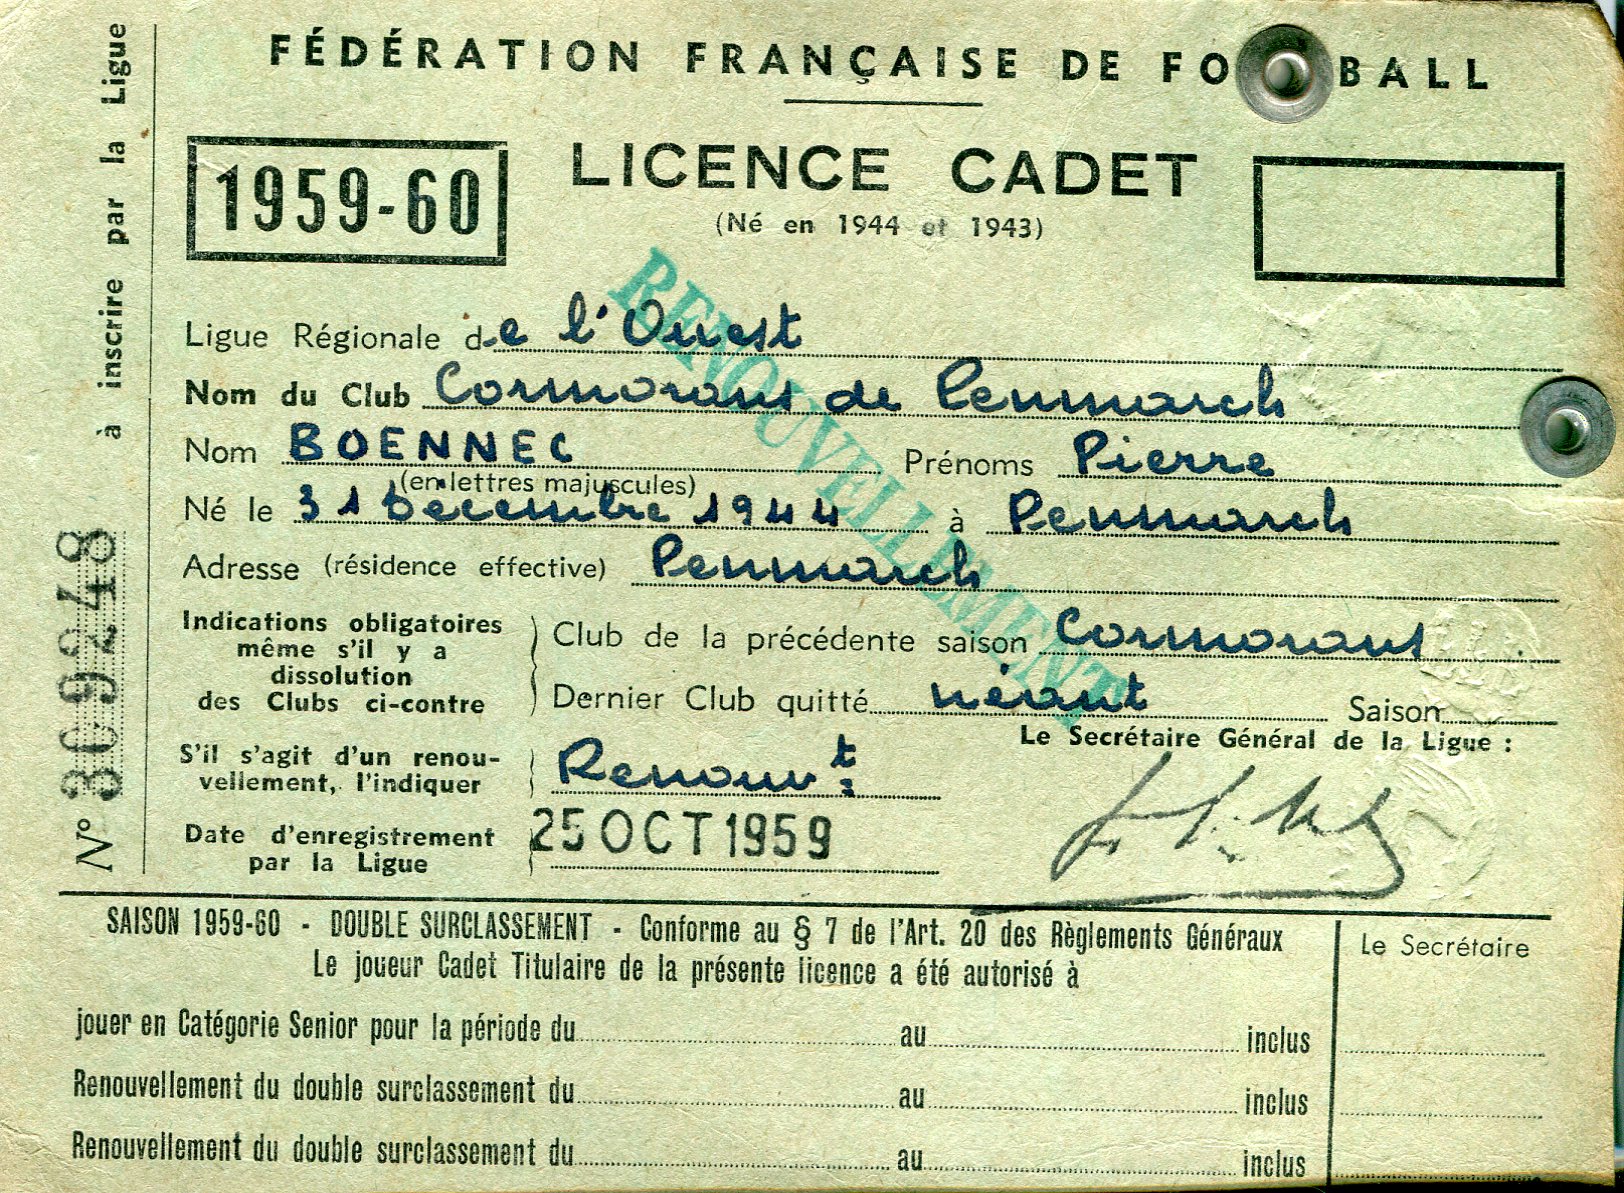 FÉDÉRATION FRANÇAISE DE FO BALL
1959-60
LICENCE CADET
(Né en 1944 et 1943)
RENOUVELLEMENT
Ligue Régionale de l'Ouest
Nom du Club Cormorans de Penmarch
Nom BOENNEC Prénoms Pierre
(en lettres majuscules)
Né le 31 Décembre 1944 à Penmarch
Adresse (résidence effective) Penmarch
Indications obligatoires
même s'il y a
dissolution
des Clubs ci-contre
Club de la précédente saison Cormorans
Dernier Club quitté néant Saison
Le Secrétaire Général de la Ligue :
S'il s'agit d'un renou-
vellement, l'indiquer
Renouv t
Date d'enregistrement
par la Ligue
25 OCT 1959
N° 309248 à inscrire par la Ligue
SAISON 1959-60 - DOUBLE SURCLASSEMENT - Conforme au § 7 de l'Art. 20 des Règlements Généraux
Le joueur Cadet Titulaire de la présente licence a été autorisé à
Le Secrétaire
jouer en Catégorie Senior pour la période du au inclus
Renouvellement du double surclassement du au inclus
Renouvellement du double surclassement du au inclus